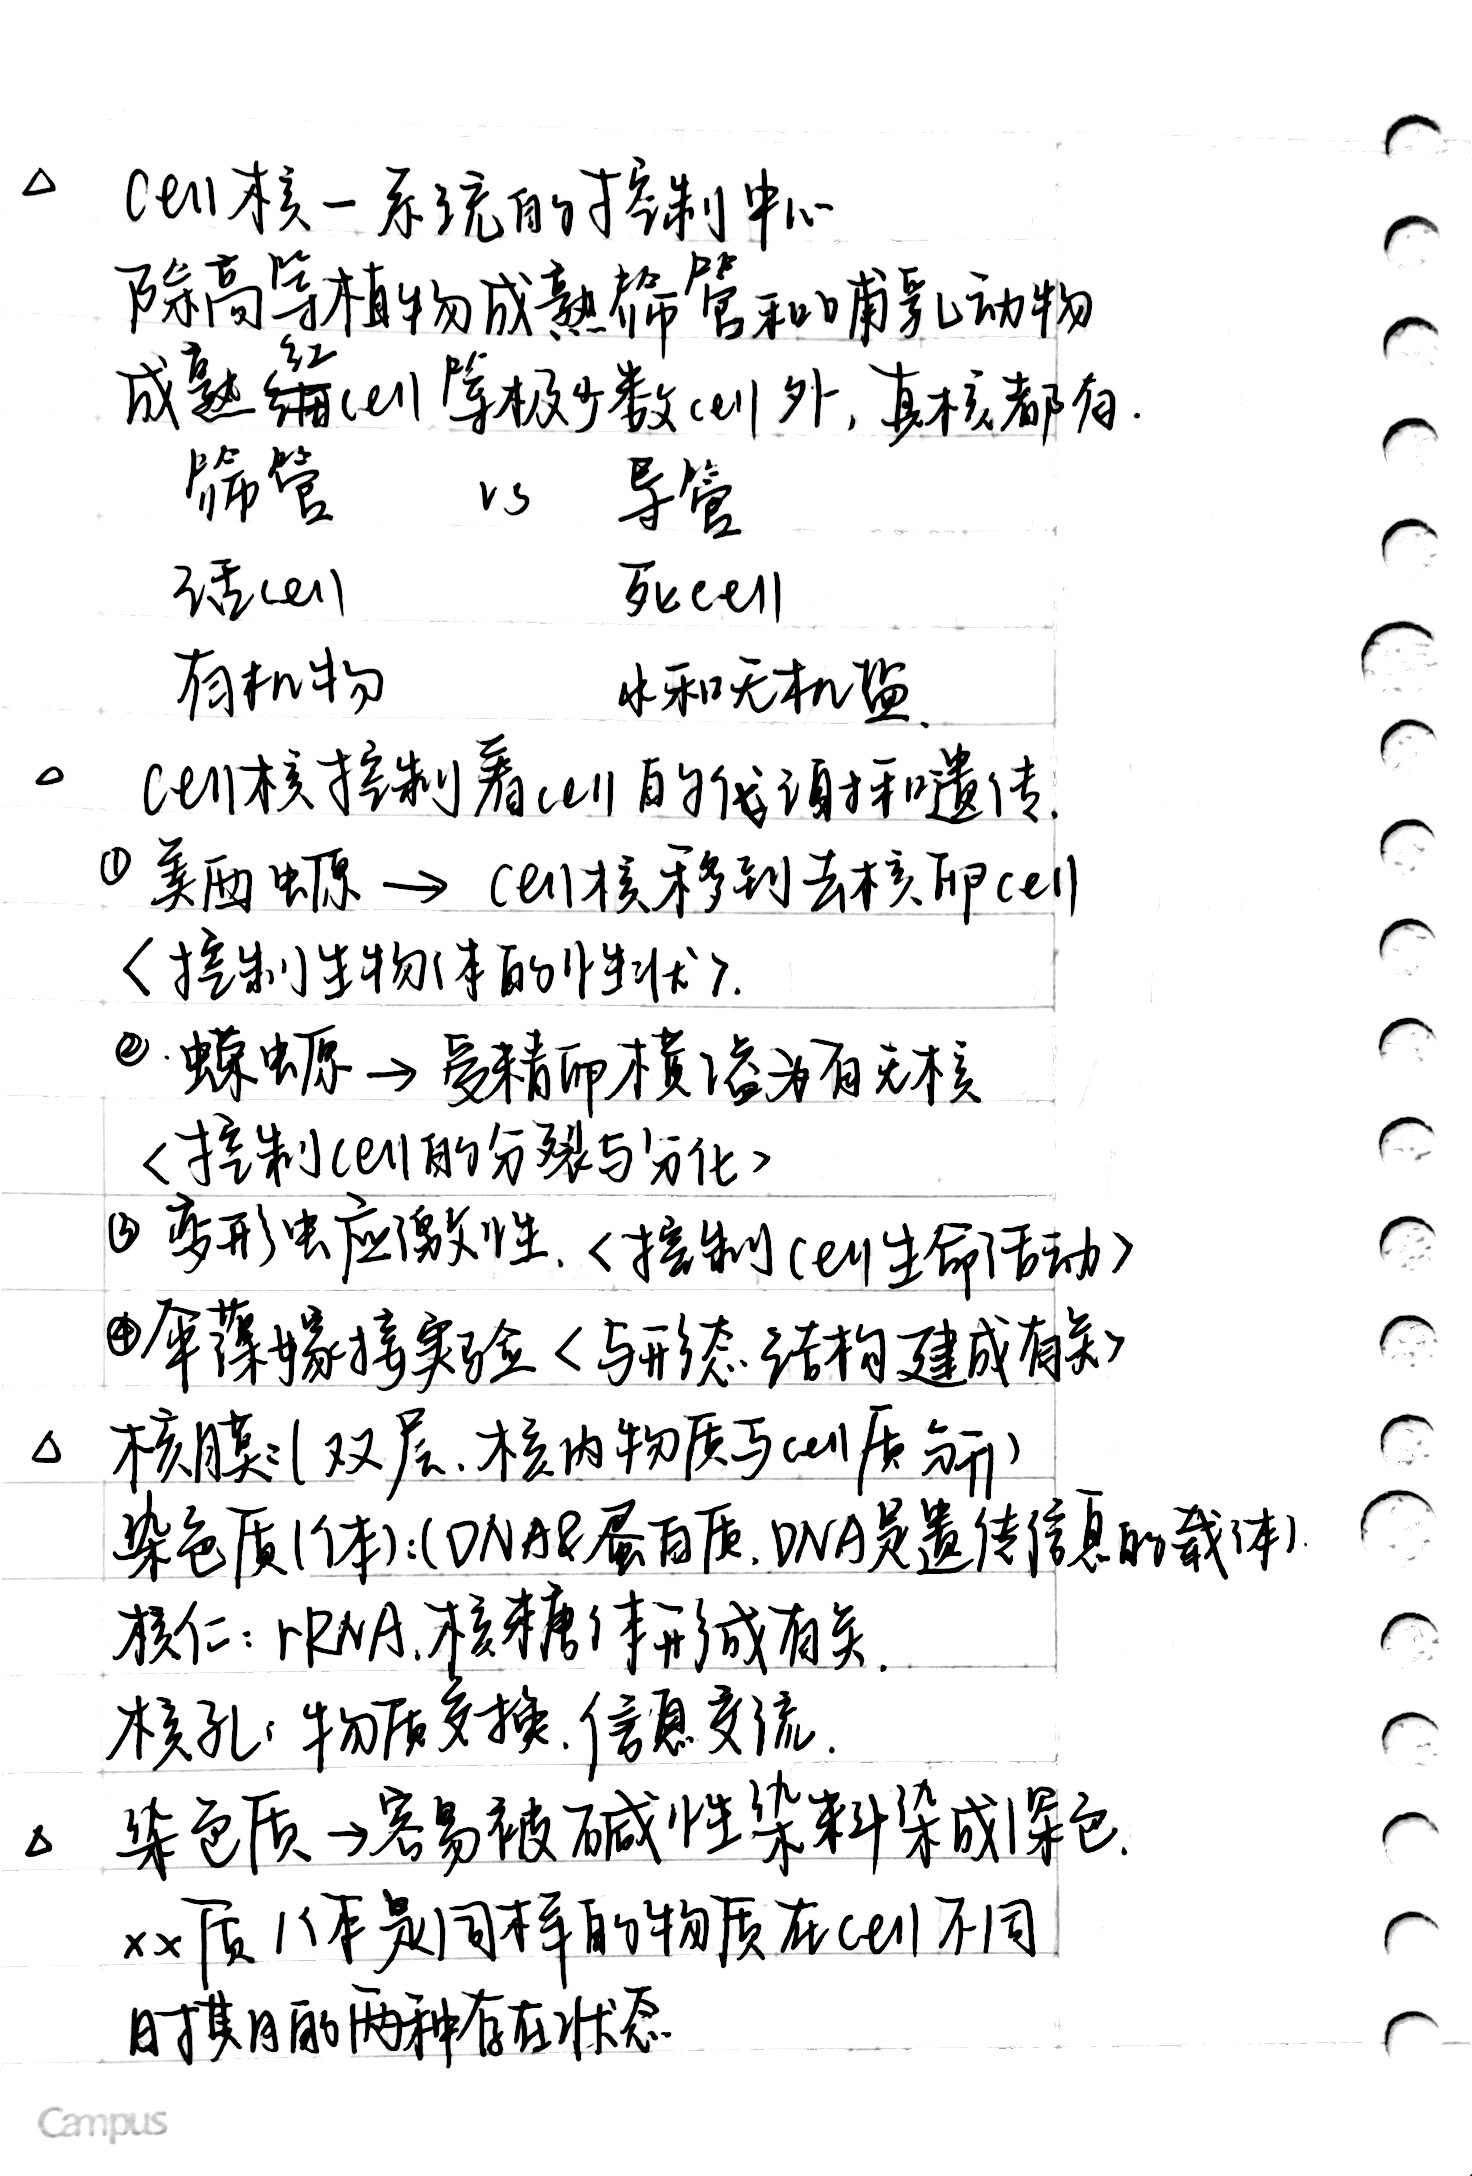 △ cell核一系统的控制中心
除高等植物成熟筛管和哺乳动物
成熟红cell等极少数cell外,真核都有.
筛管 vs 导管
活cell 死cell
有机物 水和无机盐.
△ cell核控制着cell的代谢和遗传.
① 美西螈 → cell核移到去核卵cell
<控制生物体的性状>.
②.蝾螈→受精卵横缢为有无核
<控制cell的分裂与分化>
③ 变形虫应激性.<控制cell生命活动>
④伞藻嫁接实验<与形态.结构建成有关>
△ 核膜:(双层.核内物质与cell质分开)
染色质(体):(DNA&蛋白质.DNA是遗传信息的载体).
核仁: rRNA.核糖体形成有关.
核孔: 物质交换.信息交流.
△ 染色质→容易被碱性染料染成深色.
xx质/体是同样的物质在cell不同
时期的两种存在状态
Campus